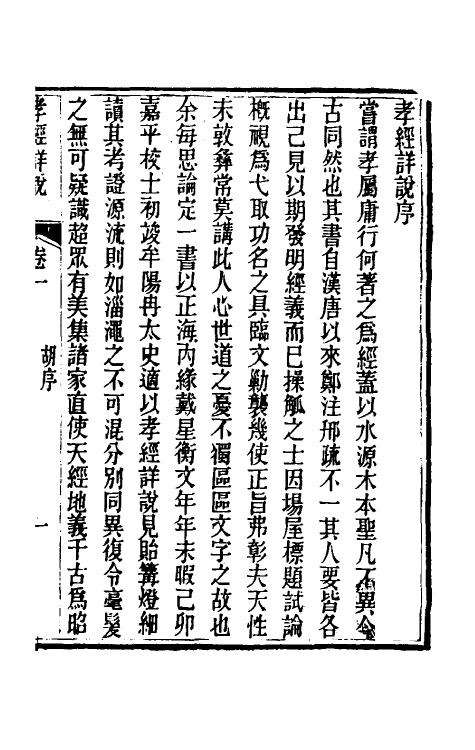 孝經詳說序
嘗謂孝屬庸行何著之爲經蓋以水源木本聖凡不異今
古同然也其書自漢唐以來鄭注邢疏不一其人要皆各
出己見以期發明經義而已操觚之士因塲屋標題試論
槪視爲弋取功名之具臨文勦襲幾使正旨弗彰夫天性
未敦彝常莫講此人心世道之憂不獨區區文字之故也
余每思論定一書以正海內緣戴星衡文年年未暇己卯
嘉平校士初竣牟陽冉太史適以孝經詳說見貽篝燈細
讀其考證源流則如淄澠之不可混分別同異復令毫髮
之無可疑識超眾有美集諸家直使天經地義千古爲昭
孝經詳說 卷一 胡序 一